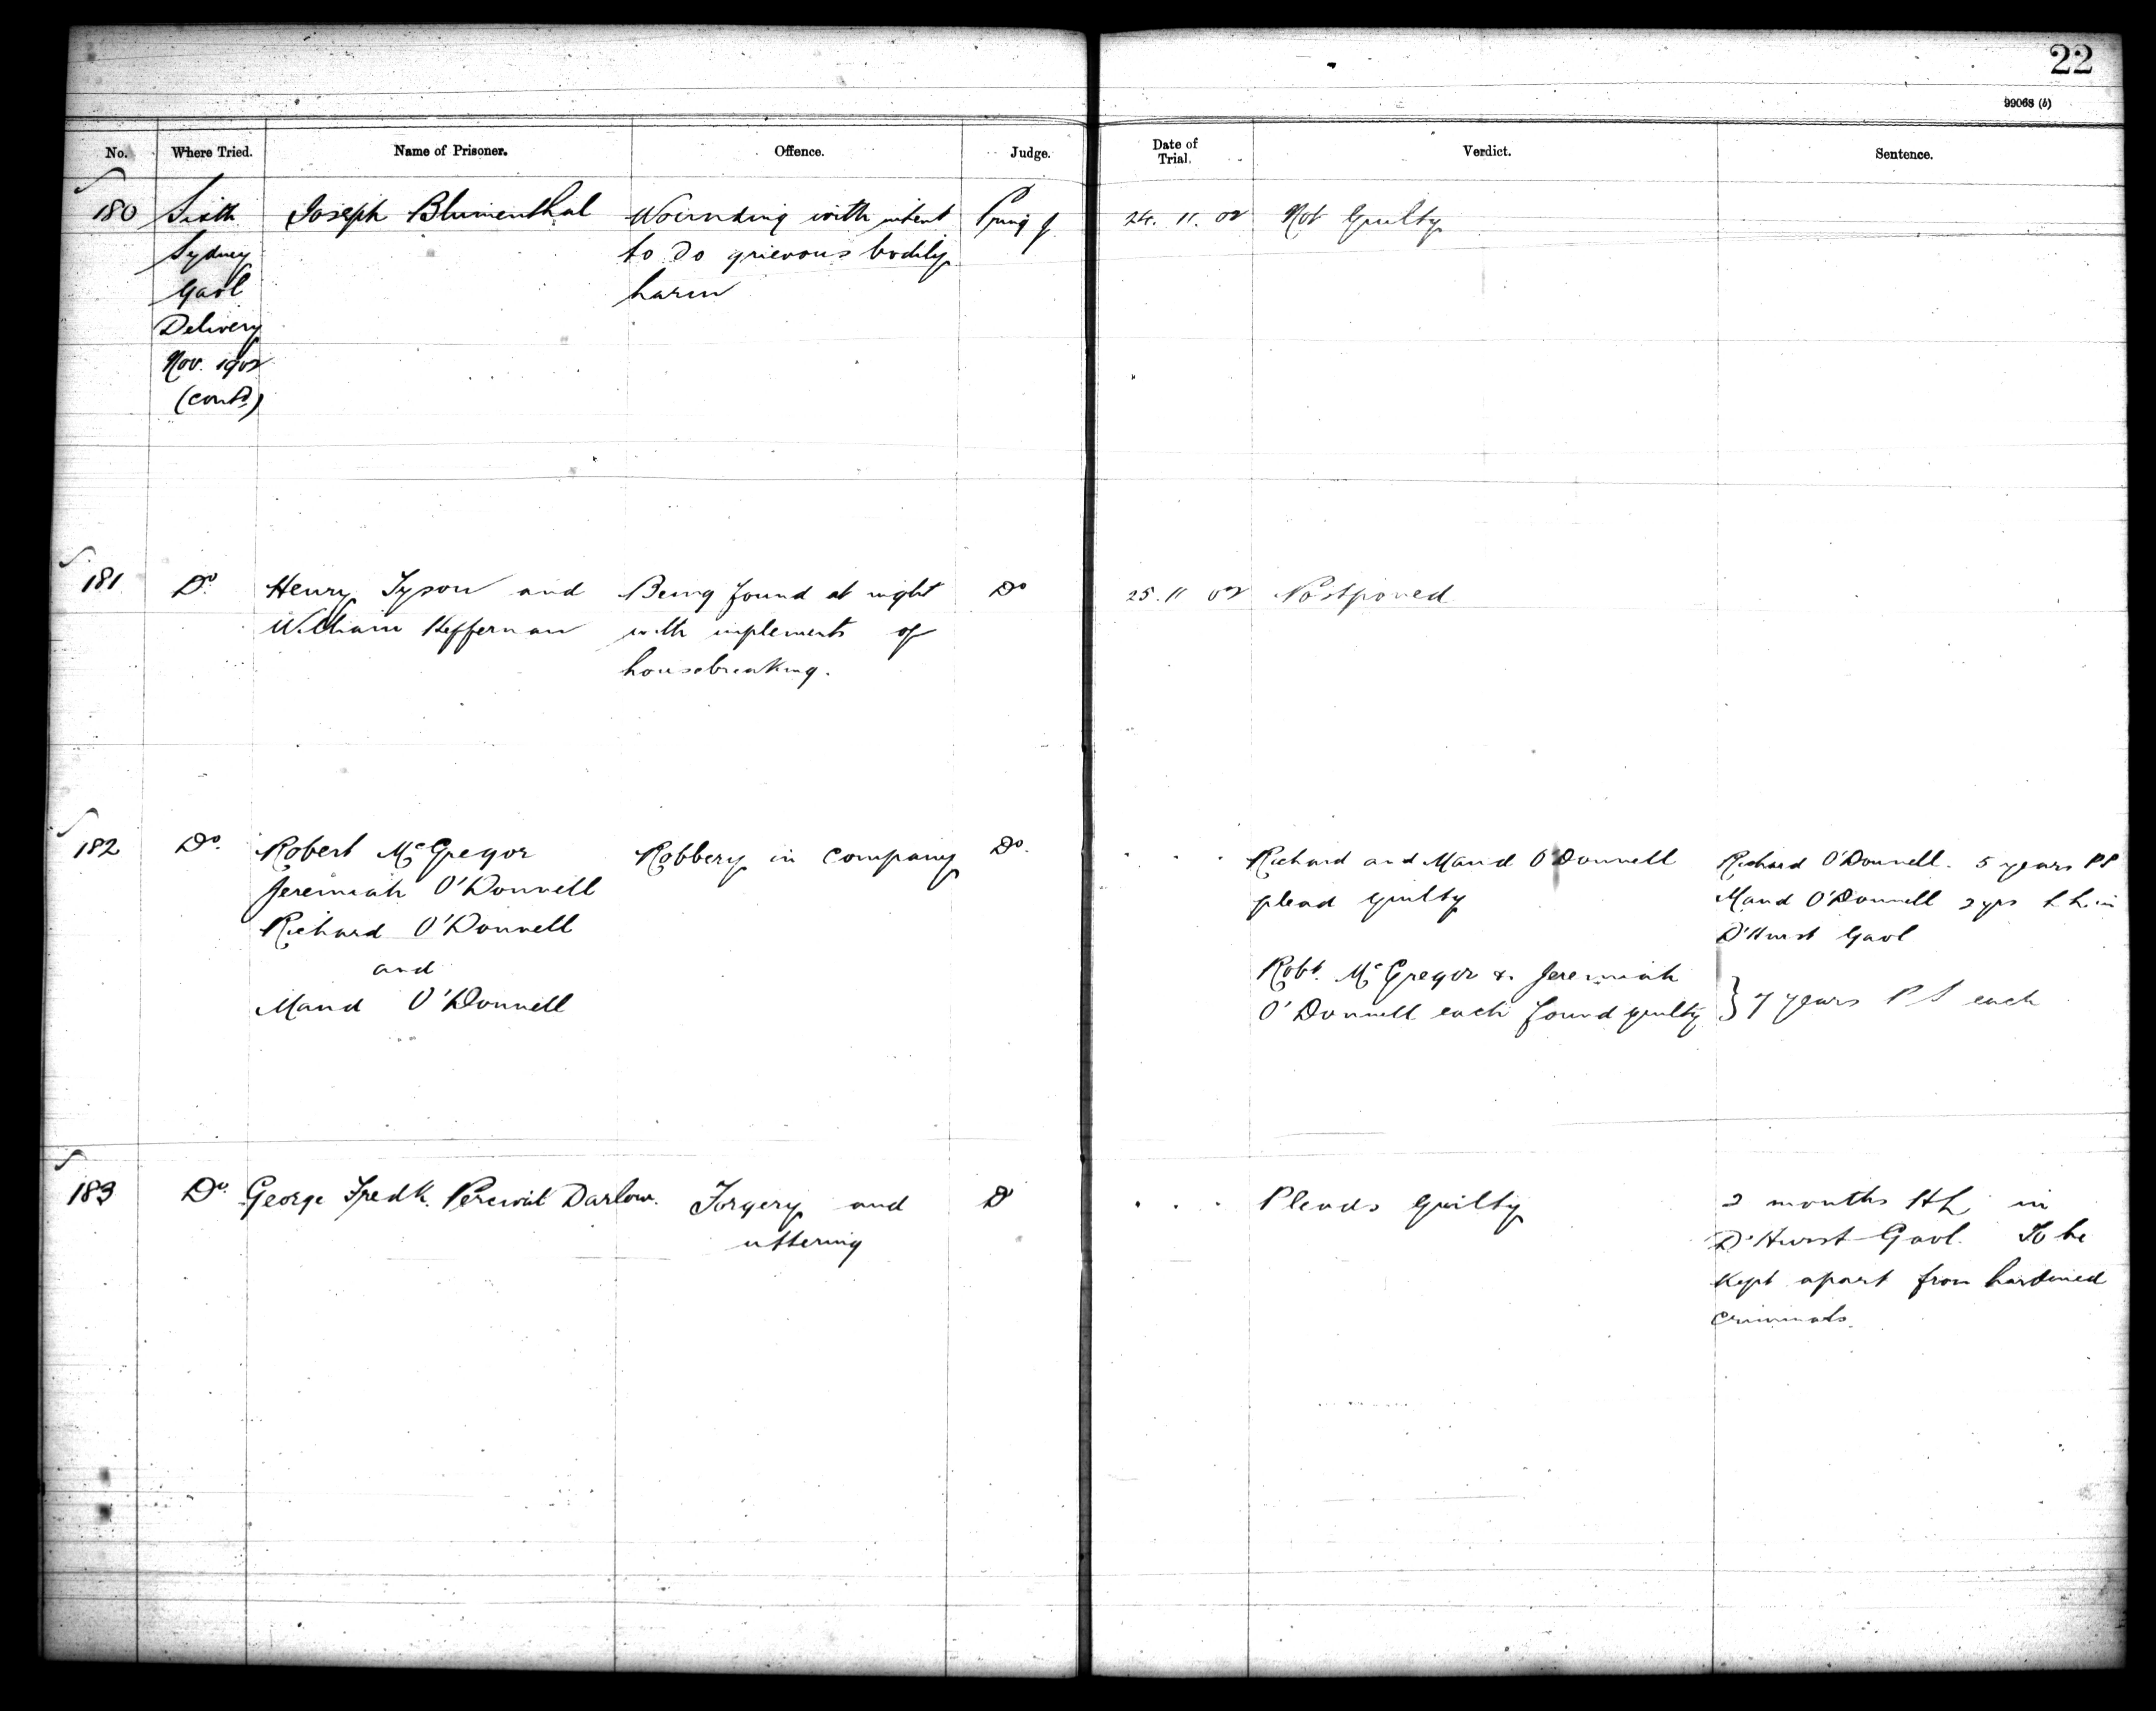 22
99068 (b)
No. Where Tried. Name of Prisoner. Offence. Judge. Date of Trial. Verdict. Sentence.
180 Sixth Joseph Blumenthal Wounding with intent Pring J 24. 11. 02 Not Guilty
Sydney to do grievous bodily
Gaol harm
Delivery
Nov. 1902
(contd.)
181 Do. Henry Tyson and Being found at night Do 25. 11 02 Postponed
William Heffernan with implements of
housebreaking.
182 Do. Robert McGregor Robbery in company Do. . . . Richard and Maud O'Donnell Richard O'Donnell. 5 years PS
Jeremiah O'Donnell plead guilty Maud O'Donnell 2 yrs h. l. in
Richard O'Donnell D'Hurst Gaol
and Robt. McGregor & Jeremiah
Maud O'Donnell O'Donnell each found guilty } 7 years P S each
183 Do. George Fredk. Percival Darlow. Forgery and Do . . . Pleads guilty 2 months HL in
uttering D'Hurst Gaol. To be
kept apart from hardened
criminals.